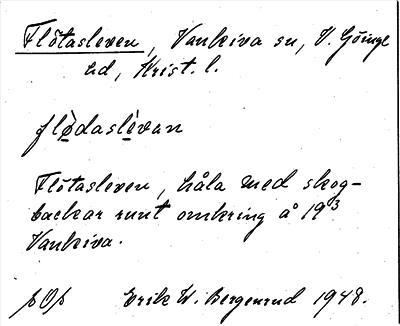 Flötasleven, Vankiva sn, V. Göinge
hd, Krist. l.
flø̀daslèvan
Flötasleven, håla med skog-
backar runt omkring å 19³
Vankiva.
pOp Erik W. Bergenrud 1948.